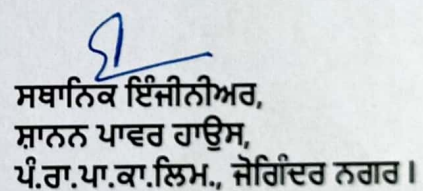 ਸਥਾਨਿਕ ਇੰਜੀਨੀਅਰ,
ਸ਼ਾਨਨ ਪਾਵਰ ਹਾਊਸ,
ਪੰ.ਰਾ.ਪਾ.ਕਾ.ਲਿਮ., ਜੋਗਿੰਦਰ ਨਗਰ।